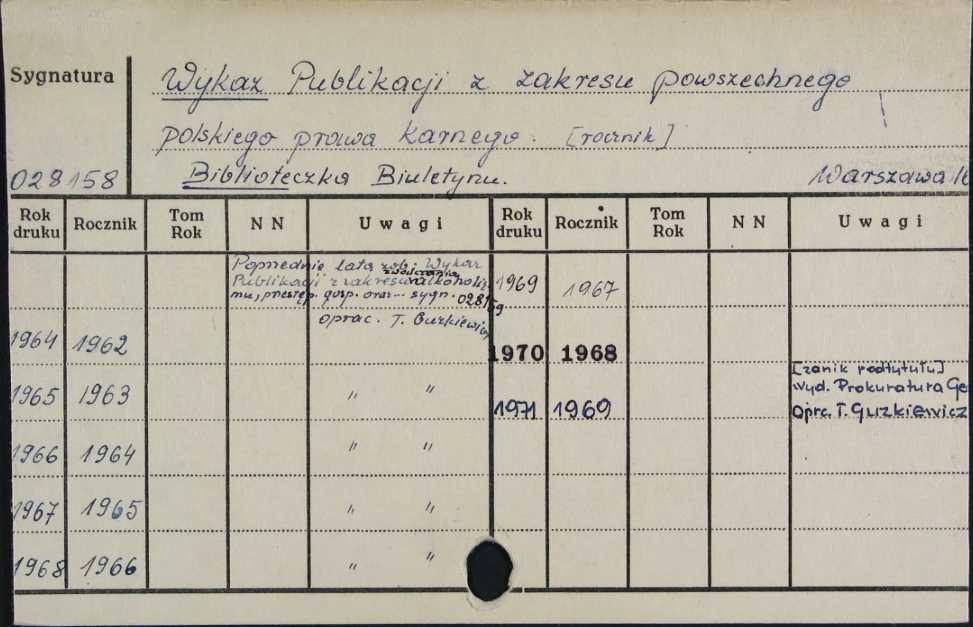 Sygnatura
Wykaz Publikacji z zakresu powszechnego
polskiego prawa karnego. [rocznik]
028158 Biblioteczka Biuletynu. Warszawa
Rok druku Rocznik Tom Rok N N Uwagi Rok druku Rocznik Tom Rok N N Uwagi
Poprzednie lata zob: Wykaz
zwalczania
Publikacji z zakresu alkoholiz
mu, przestęp. gosp. oraz... sygn. 028159
1969 1967
oprac. T. Guzkiewicz
1964 1962
1970 1968
[zanik podtytułu]
wyd. Prokuratura Ge
1965 1963 " "
1971 1969 oprc. T. Guzkiewicz
1966 1964 " "
1967 1965 " "
1968 1966 " "